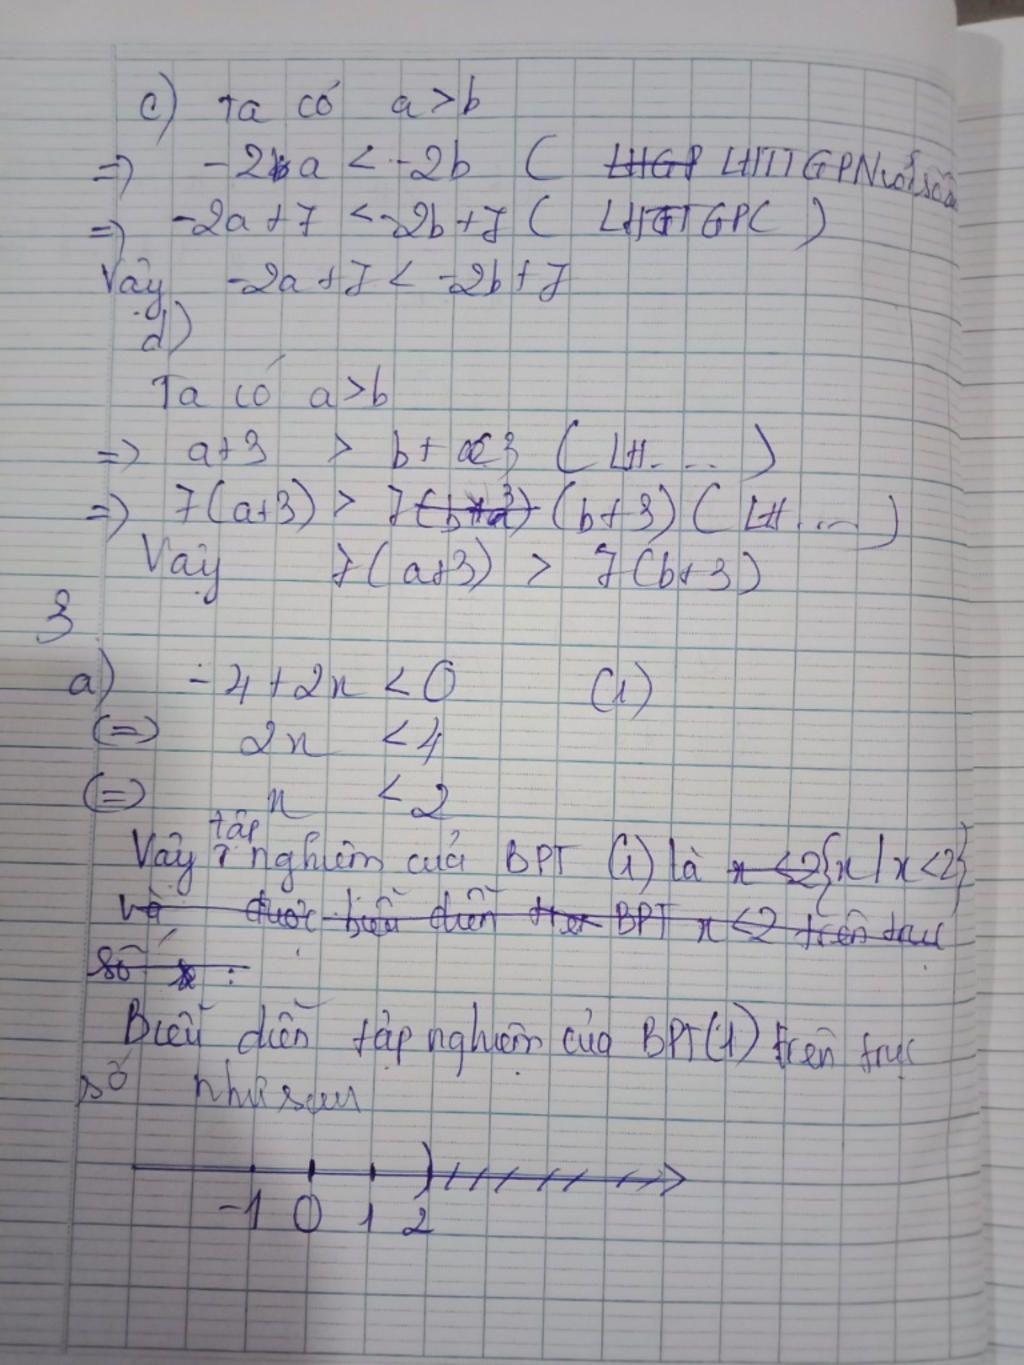 c) Ta có a > b
=> -2a < -2b ( LHTTGPN với số
=> -2a + 7 < -2b + 7 ( LHTTGPC )
Vậy -2a + 7 < -2b + 7
d)
Ta có a > b
=> a+3 > b+3 ( LH... )
=> 7(a+3) > 7 (b+3) ( LH ... )
Vậy 7(a+3) > 7(b+3)
3
a) -4 + 2x < 0 (1)
(=) 2x < 4
(=) x < 2
tập
Vậy nghiệm của BPT (1) là x < 2 {x | x < 2}
và được biểu diễn trên BPT x < 2 trên trục
số :
Biểu diễn tập nghiệm của BPT(1) trên trục
số như sau
-1 0 1 2